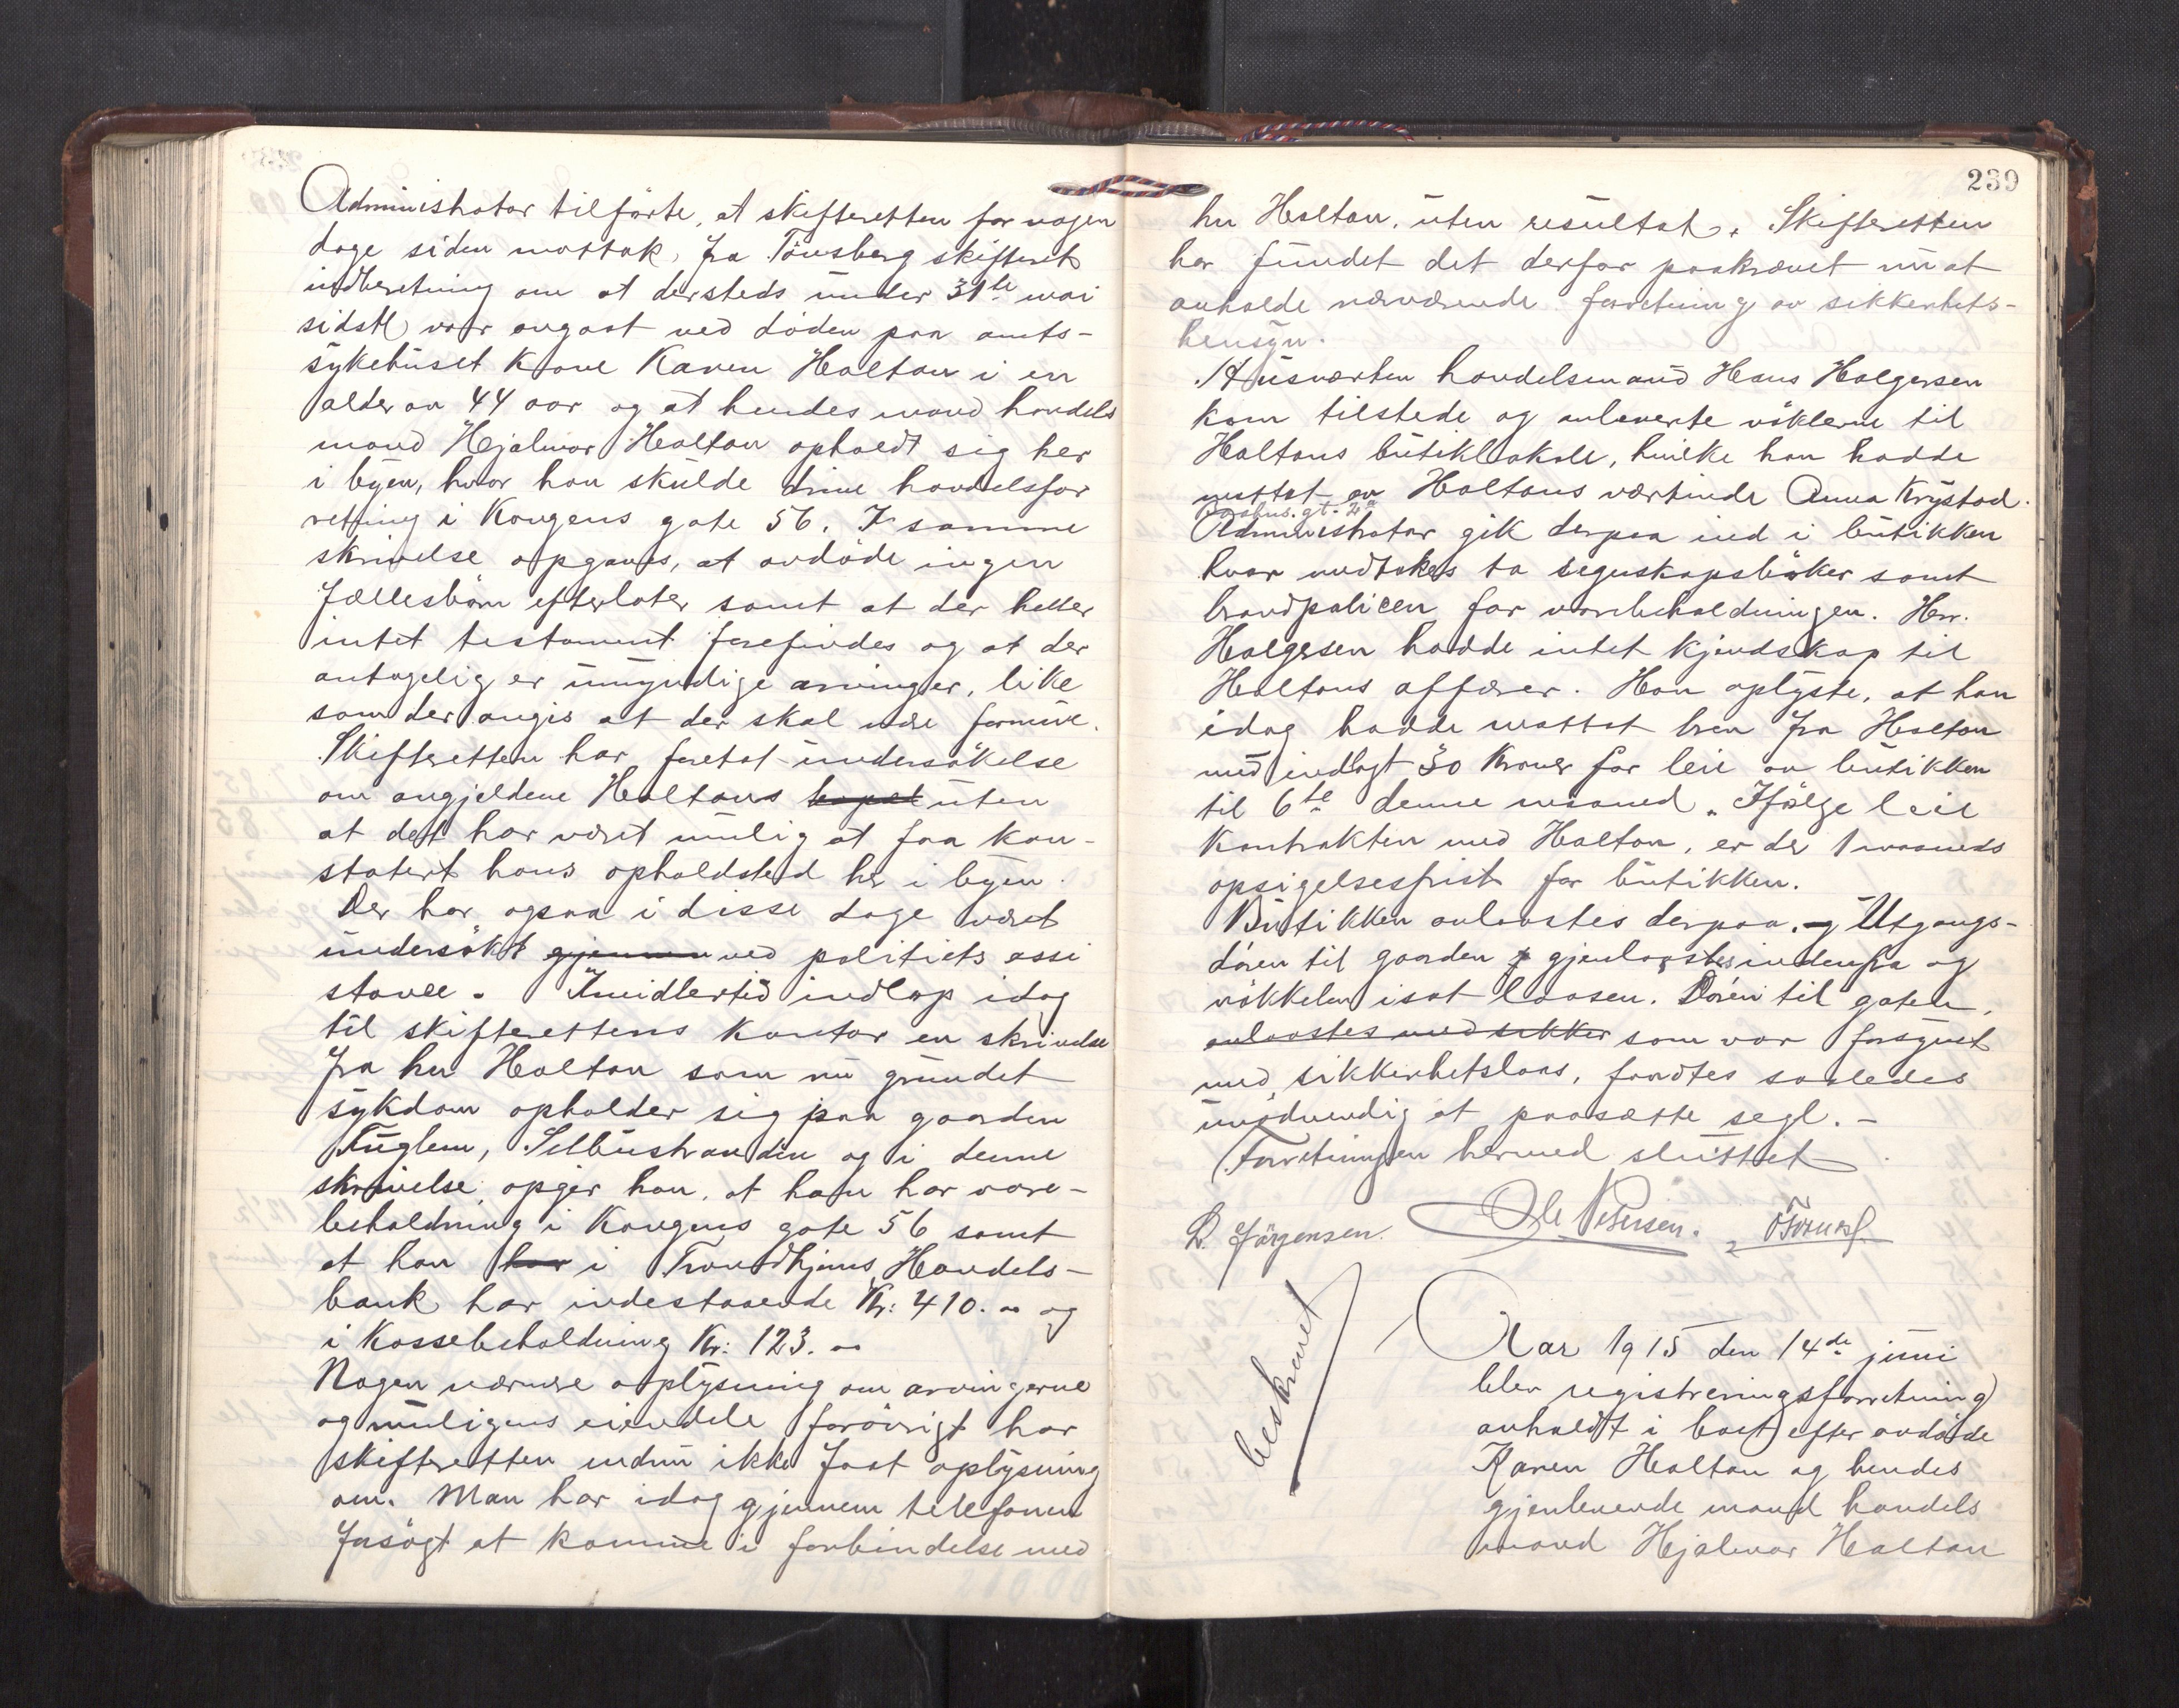 Administrator tilførte, at skifteretten for nogen
dage siden mottok, fra Tönsberg skifteret
indberetning om at dersteds under 31te mai
sidstl var avgaat ved döden paa amts-
sykehuset Kone Karen Holtan i en
alder av 44 aar og at hendes mand handels
mand Hjalmar Holtan opholdt sig her
i byen, hvor han skulde drive handelsfor
retning i Kongens gate 56. I samme
skrivelse opgaves, at avdöde ingen
fællesbarn efterlater samt at der heller
intet testament forefindes og at der
antagelig er umyndige arvinger, like
som der angis at der skal være formue.
Skifteretten har foretat undersökelse
om angjeldene Holtans bopæl uten
at det har været mulig at faa kon-
statert hans opholdsted her i byen.
Der har ogsaa i disse dage været
undersökt gjennem ved politiets assi
stance. Imidlertid indlöp idag
til skifterettens kontor en skrivelse
fra hr Holtan som nu grundet
sykdom opholder sig paa gaarden
Fuglem, Selbustranden og i denne
skrivelse opgir han, at han har vare-
beholdning i Kongens gate 56 samt
at han har i Trondhjems Handels-
bank har indestaaende Kr: 410.00 og
i Kassebeholdning Kr: 123.00
Nogen nærmere oplysning om arvingerne
og muligens eiendele forövrigt har
skifteretten endnu ikke faat oplysning
om. Man har idag gjennem telefonen
forsögt at komme i forbindelse med
239
hr Holtan, uten resultat. Skifteretten
har fundet det derfor paakrævet nu at
avholde nærværende forretning av sikkerhets-
hensyn.
Husværten handelsmand Hans Holgersen
kom tilstede og avleverte nöklerne til
Holtans butiklokale, hvilke han hadde
mottat av Holtans værtinde Anna Krystad.
gt. 2a
Administrator gik derpaa ind i butikken
hvor medtokes to regnskapsböker samt
brandpolicen for varebeholdningen. Herr.
Holgersen hadde intet kjendskap til
Holtans affærer. Han oplyste, at han
idag hadde mottat brev fra Holtan
med indlagt 30 Kroner for leie av butikken
til 6te denne maaned. Ifölge leie
Kontrakten med Holtan, er der 1 maaneds
opsigelsesfrist for butikken.
Butikken avlaastes derpaa. og Utgangs-
dören til gaarden gjenlaastes indenfra og
nökkelen isat laasen. Dören til gaten,
avlaastes med sikker som var forsynet
med sikkerhetslaas, fandtes saaledes
unödvendig at paasætte segl. -
Forretningen hermed sluttet
D. Jörgensen. Ole Pedersen.
beskrevet
Aar 1915 den 14de juni
blev registreringsforretning
avholdt i boet efter avdöde
Karen Holtan og hendes
gjenlevende mand handels
mand Hjalmar Holtan